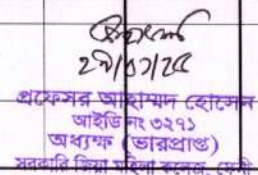 ২৭/০১/২৫
প্রফেসর আহাম্মদ হোসেন
আইডি নং ৩২৭১
অধ্যক্ষ (ভারপ্রাপ্ত)
সরকারি জিয়া মহিলা কলেজ, ফেনী